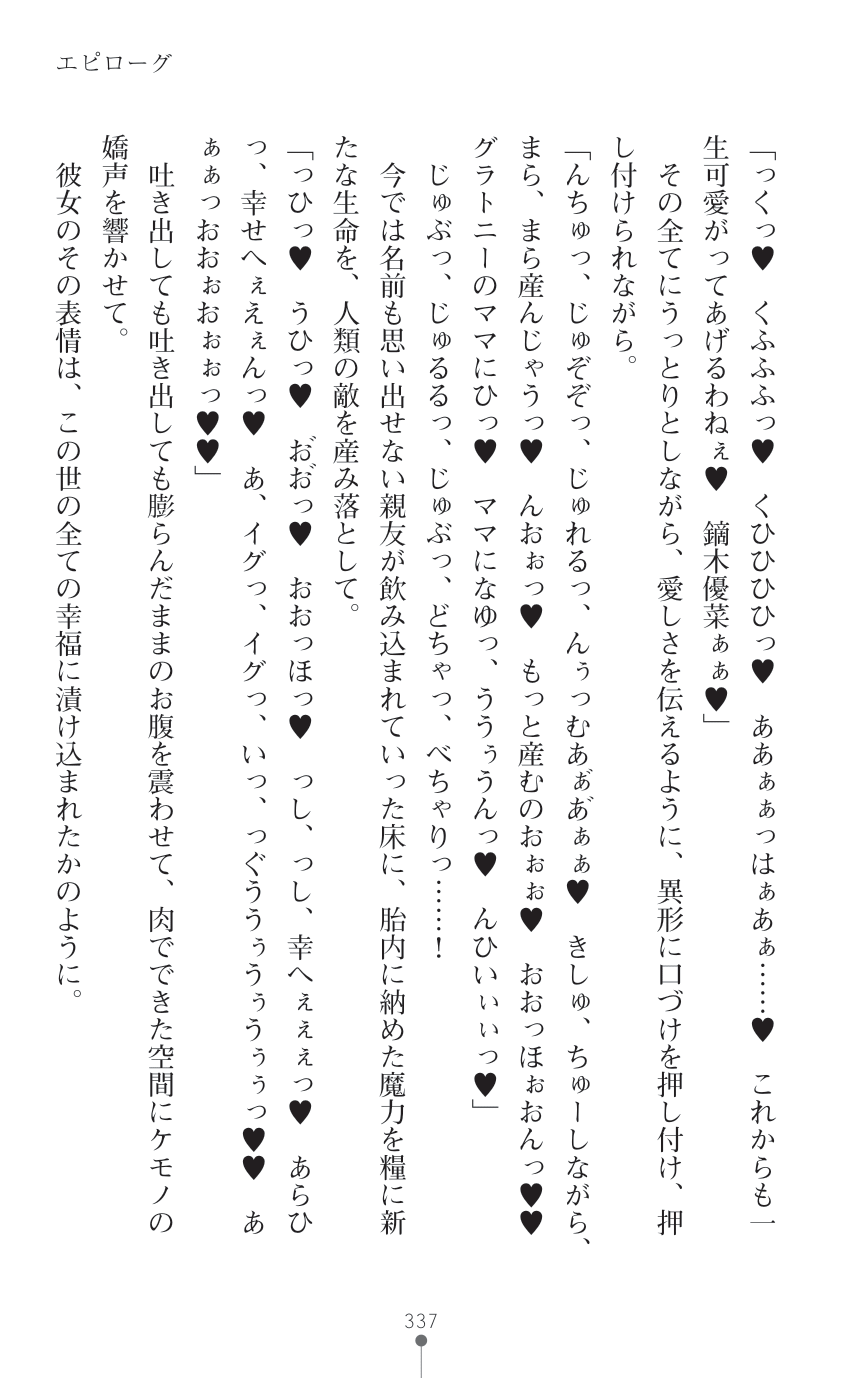 エピローグ
「っくっ♥　くふふふっ♥　くひひひひっ♥　ああぁぁっはぁあぁ……♥　これからも一
生可愛がってあげるわねぇ♥　鏑木優菜ぁぁ♥」
　その全てにうっとりとしながら、愛しさを伝えるように、異形に口づけを押し付け、押
し付けられながら。
「んちゅっ、じゅぞぞっ、じゅれるっ、んぅっむあぁ゙あ゙ぁぁ♥　きしゅ、ちゅーしながら、
まら、まら産んじゃうっ♥　んおぉっ♥　もっと産むのおぉぉ♥　おおっほぉおんっ♥♥
グラトニーのママにひっ♥　ママになゆっ、ううぅうんっ♥　んひいぃぃっ♥」
　じゅぶっ、じゅるるっ、じゅぶっ、どちゃっ、べちゃりっ……！
　今では名前も思い出せない親友が飲み込まれていった床に、胎内に納めた魔力を糧に新
たな生命を、人類の敵を産み落として。
「っひっ♥　うひっ♥　お゙お゙っ♥　おおっほっ♥　っし、っし、幸へぇぇぇっ♥　あらひ
っ、幸せへぇえぇんっ♥　あ、イグっ、イグっ、いっ、っぐううぅうぅうぅぅっ♥♥　あ
ぁぁっおおぉおぉぉっ♥♥」
　吐き出しても吐き出しても膨らんだままのお腹を震わせて、肉でできた空間にケモノの
嬌声を響かせて。
　彼女のその表情は、この世の全ての幸福に漬け込まれたかのように。
337